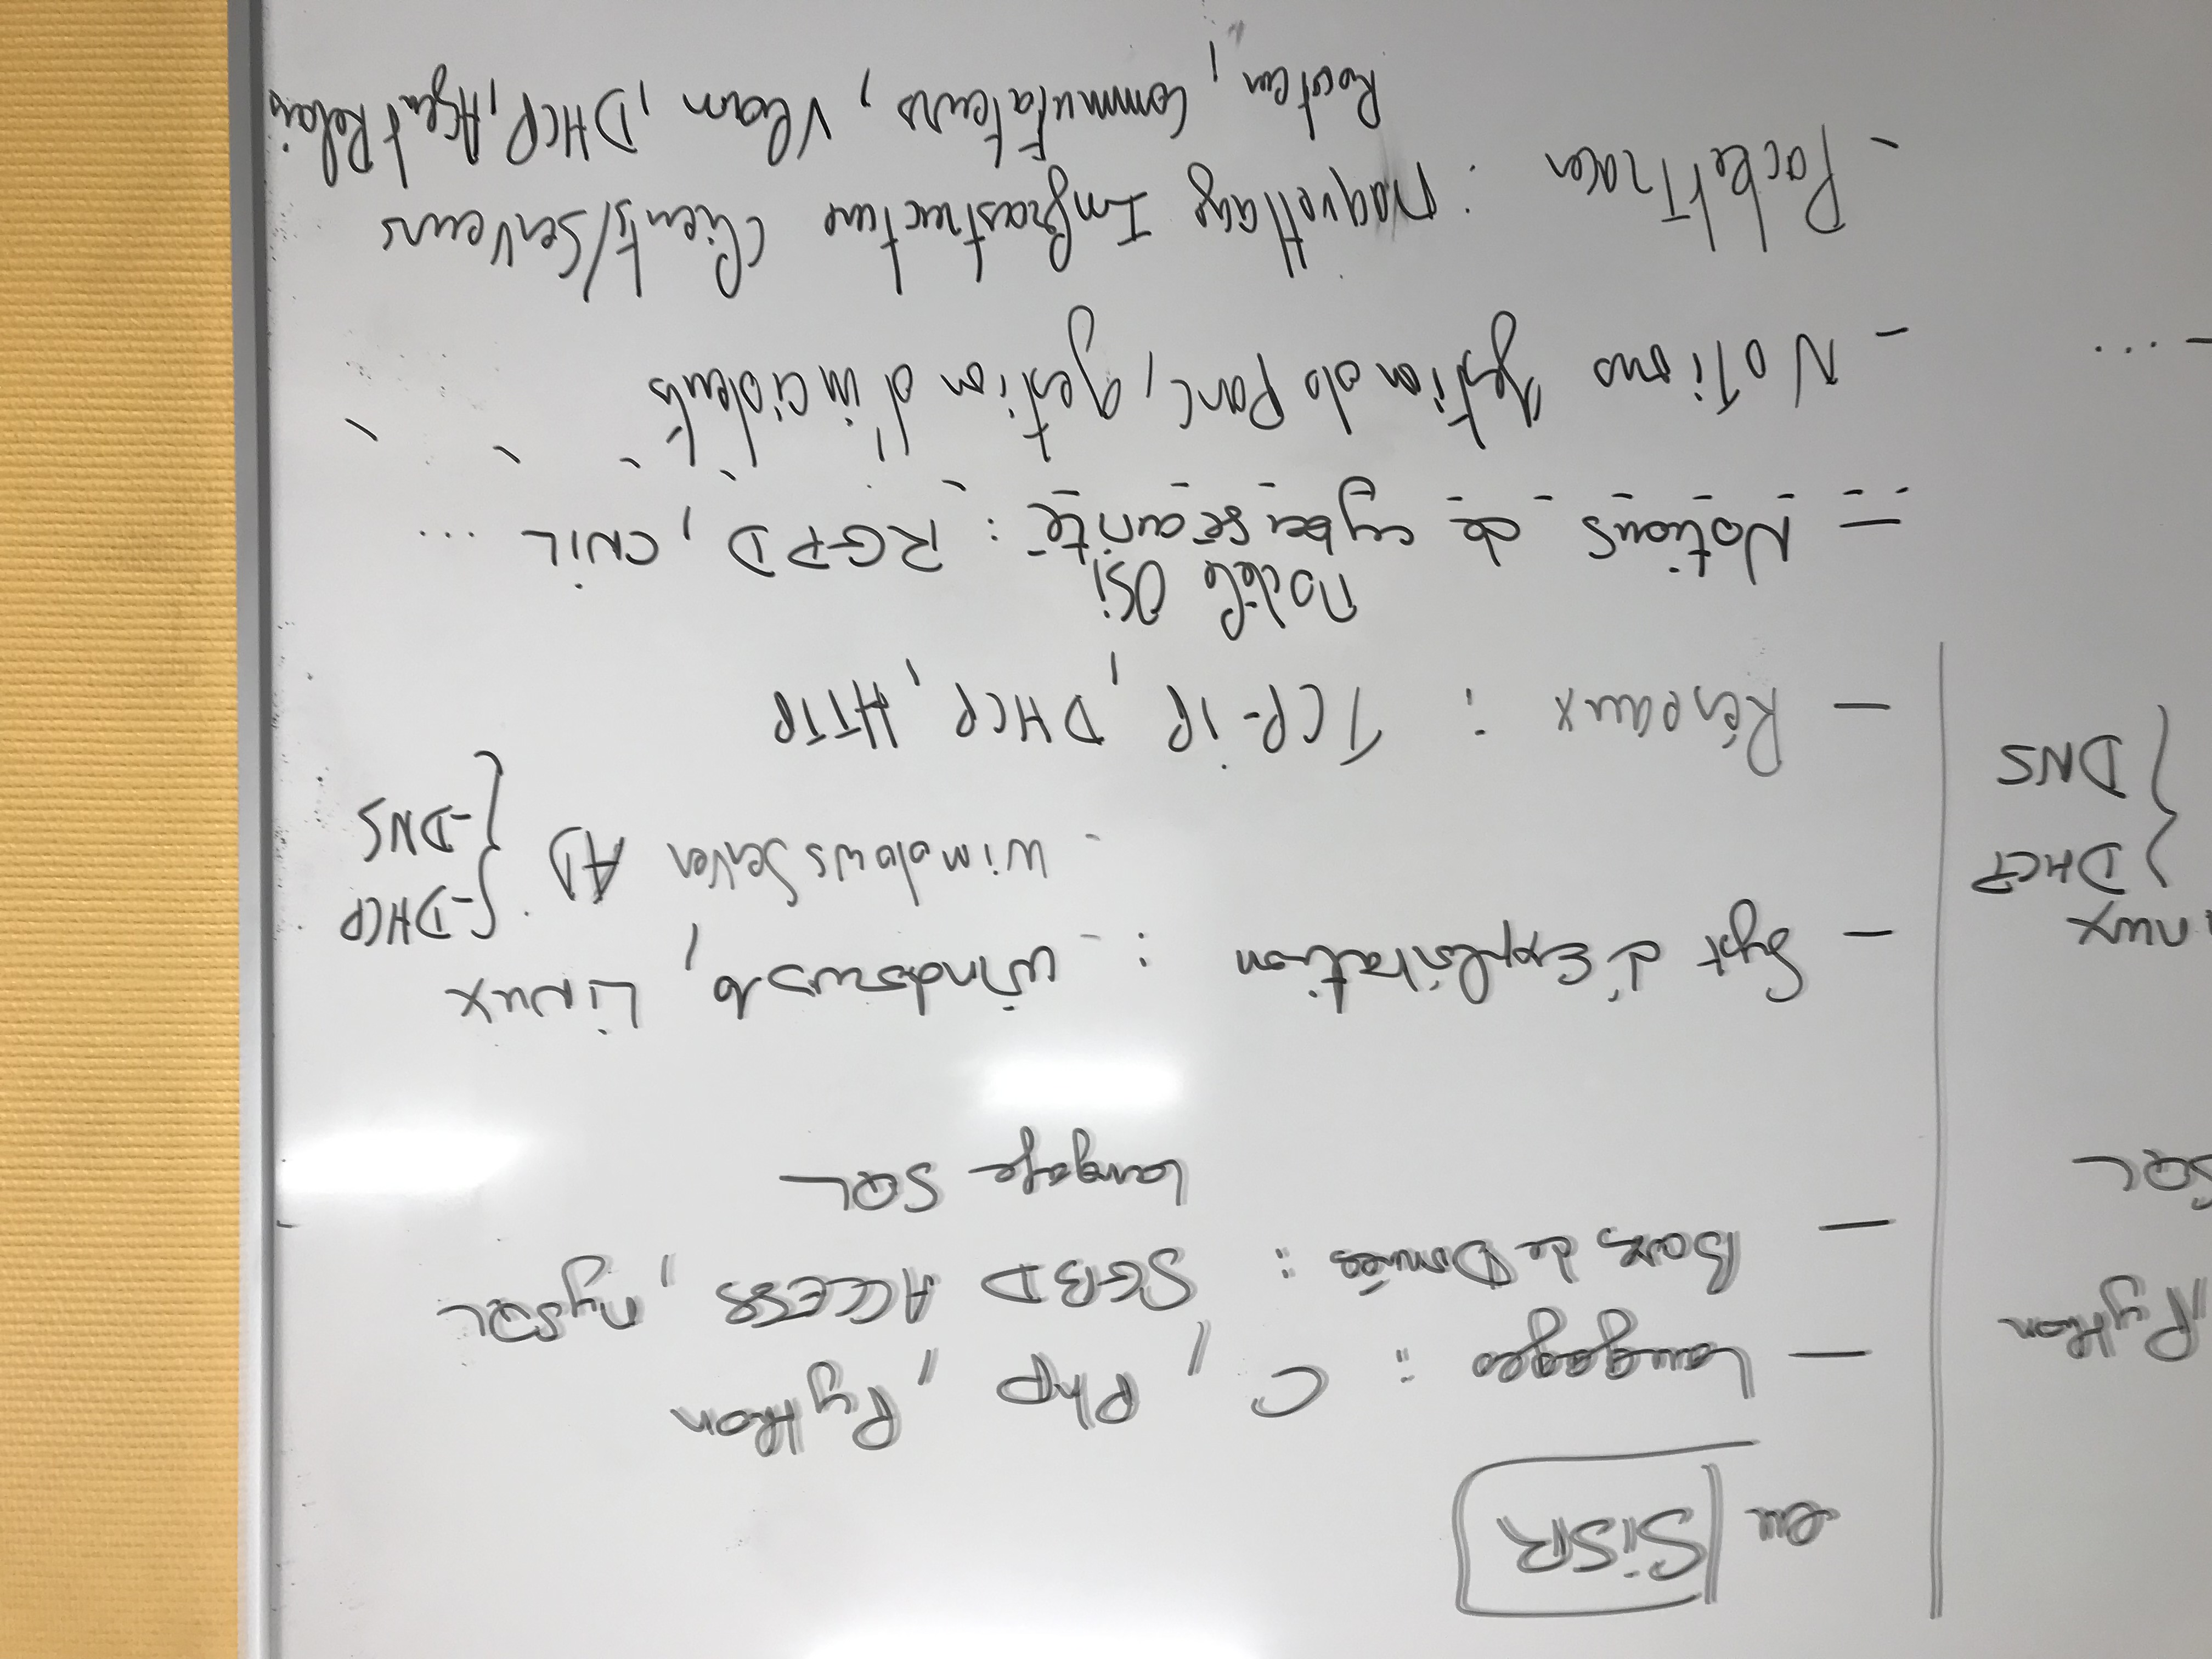 ,Python
SQL
nux
DHCP
DNS
- ...
en SiSR
- Langages : C , Php , Python
- Bases de Données : SGBD ACCESS , mySQL
langage SQL
- Syst d'Exploitation : - windows , LiNux
- windows Server AD - DHCP
- DNS
- Réseaux : TCP-iP , DHCP , HTTP
modèle OSi
- Notions de cybersécurité : RGPD , CNiL ...
- Notions gestion de parc, gestion d'incidents
- PacketTracer : maquettage Infrastructure Clients/Serveurs
Routeur , Commutateurs , Vlan , DHCP, Agent Relais